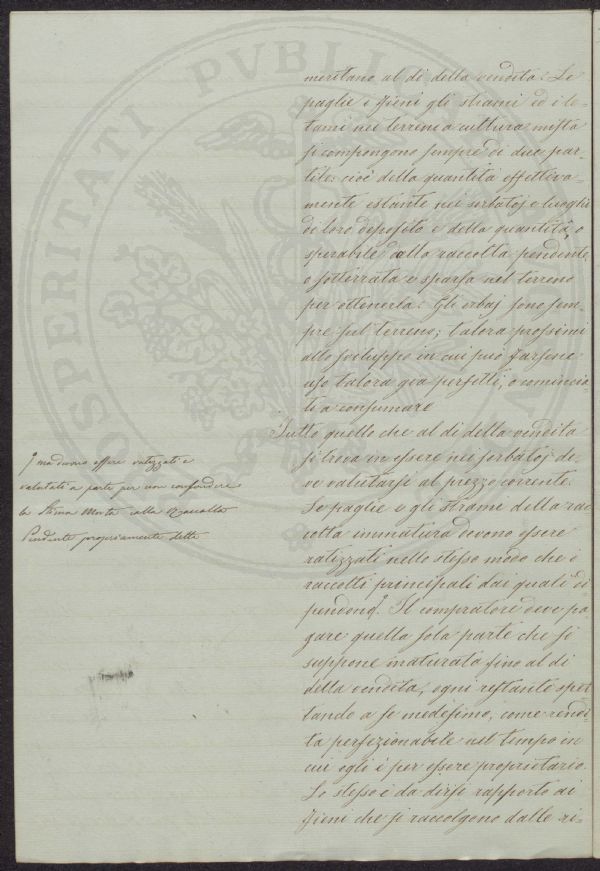 meritano al di della vendita. Le
paglie i fieni gli strami ed i le-
tami nei terreni a cultura mista
si compongono sempre di due par-
tite: cioè della quantità effettiva-
mente estante nei serbatoj o luoghi
di loro deposito e della quantità, o
sperabile dalla raccolta pendente,
o sotterrata e sparsa nel terreno
per ottenerla. Gli erbaj sono sem-
pre sul terreno; talora prossimi
allo sviluppo in cui può farsene
uso talora già perfetti, o comincia-
ti a consumare
Tutto quello che al di della vendita
si trova in essere nei serbatoj de-
ve valutarsi al prezzo corrente.
Le paglie e gli strami della rac-
colta immatura devono essere
ratizzati nello stesso modo che i
raccolti principali dai quali di-
pendono. Il compratore deve pa-
gare quella sola parte che si
suppone maturata fino al di
della vendita, ogni restante spet-
tando a se medesimo, come rendi-
ta perfezionabile nel tempo in
cui egli è per essere proprietario.
Lo stesso è da dirsi rapporto ai
fieni che si raccolgono dalle ri-
ma devono essere ratizzati e
valutati a parte per non confondere
la Stima Morta colla Raccolta
Pendente propriamente detta
PROSPERITATI PVBLICAE